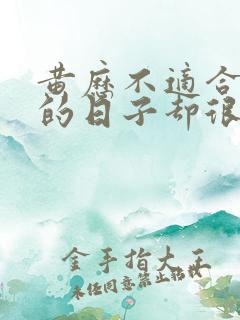 黄历不适合
的日子却很
金手指大王
未经同意禁止转载